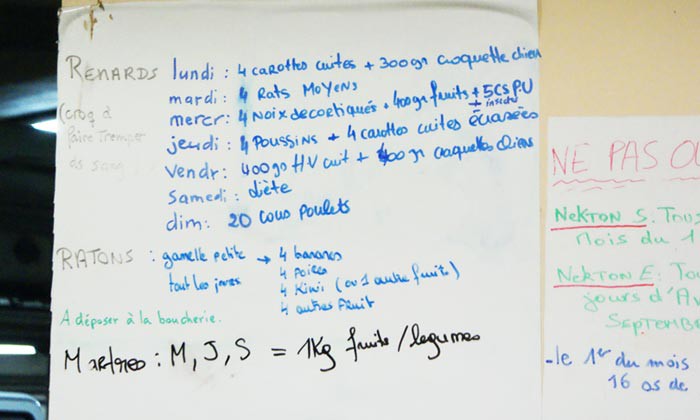 RENARDS lundi : 4 carottes cuites + 300gr croquette chien
mardi : 4 Rats Moyens
mercr : 4 Noix decortiqués + 400gr fruits + 5CS PU
+ insecte
(croq à
faire tremper
ds sang
jeudi : 4 Poussins + 4 carottes cuites écrasées
vendr : 400gr HV cuit + 400 gr croquettes chiens
samedi : diète
dim : 20 cous poulets
RATONS : gamelle petite → 4 bananes
tout les jours 4 Poires
4 Kiwi (ou 1 autre fruits)
4 autres fruit
A déposer à la boucherie.
Martres : M, J, S = 1Kg fruits/legumes
NE PAS OU
NEKTON S : Tous
Mois du 1
NEKTON E : To
jours d'Av
SEPTEMB
- le 1er du mois
16 os de